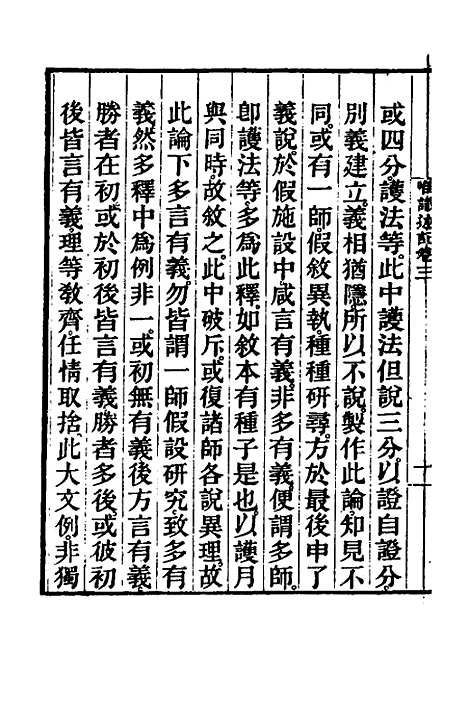 唯識述記卷三
十一
或四分護法等。此中護法但說三分。以證自證分。
別義建立。義相猶隱。所以不說。製作此論。知見不
同。或有一師。假敘異執。種種硏尋。方於最後申了
義說。於假施設中。咸言有義。非多有義。便謂多師。
卽護法等。多爲此釋。如敘本有種子是也。以護月
與同時。故敘之。此中破斥。或復諸師各說異理。故
此論下多言有義。勿皆謂一師假設硏究。致多有
義。然多釋中爲例非一。或初無有義後方言有義。
勝者在初。或於初後皆言有義。勝者多後。或彼初
後皆言有義。理等敎齊。任情取捨。此大文例。非獨